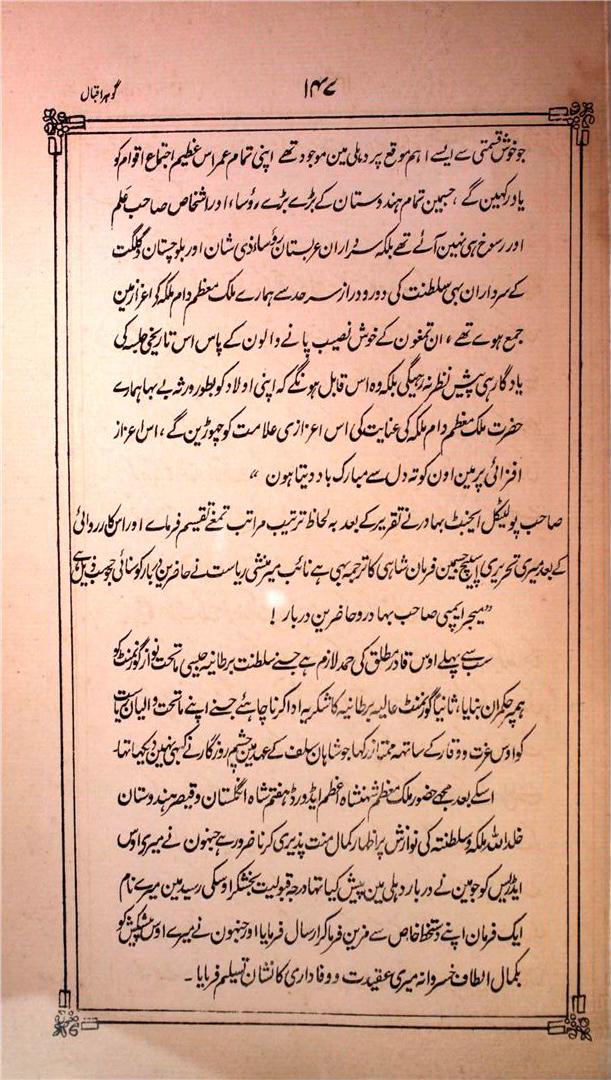 گوہر اقبال
۱۴۷
جو خوش قسمتی سے ایسے اہم موقع پر دہلی مین موجود تھے اپنی تمام عمر اس عظیم اجتماع اقوام کو
یاد رکہین گے ، جسمین تمام ہندوستان کے بڑے بڑے روسا ، اور اشخاص صاحب علم
اور رسوخ ہی نہین آئے تھے بلکہ سرداران عربستان روساء ذی شان اور بلوچستان و گلگت
کے سرداران بہی سلطنت کی دور دراز سرحد سے ہمارے ملک معظم دام ملکہ کی اعزاز مین
جمع ہوے تھے ، ان تمغون کے خوش نصیب پانے والون کے پاس اس تاریخی جلسہ کی
یادگار ہی پیش نظر نہ رہیگی بلکہ وہ اس قابل ہونگے کہ اپنی اولاد کو بطور ورثہ بے بہا ہمارے
حضرت ملک معظم دام ملکہ کی عنایت کی اس اعزازی علامت کو چہوڑین گے ، اس اعزاز
افزائی پر مین اون کو تہ دل سے مبارک باد دیتا ہون “
صاحب پولیٹکل ایجنٹ بہادر نے تقریر کے بعد بہ لحاظ ترتیب مراتب تمغے تقسیم فرماے اور اس کارروائی
کے بعد میری تحریری اسپیچ جسمین فرمان شاہی کا ترجمہ بہی ہے نائب میر منشی ریاست نے حاضرین دربار کو سنائی جو حسب ذیل ہے
”میجر ایمپی صاحب بہادر و حاضرین دربار !
سب سے پہلے اوس قادر مطلق کی حمد لازم ہے جسنے سلطنت برطانیہ جیسی ماتحت نواز گورنمنٹ کو
ہمپر حکمران بنایا ، ثانیاً گورنمنٹ عالیہ برطانیہ کا شکریہ ادا کرنا چاہئے جسنے اپنے ماتحت والیان ریاست
کو اوس عزت و وقار کے ساتہہ ممتاز رکہا جو شاہان سلف کے عہد مین چشم روزگار نے کبہی نہین دیکہا تہا۔
اسکے بعد مجھے حضور ملک معظم شہنشاہ اعظم ایڈورڈ ہفتم شاہ انگلستان و قیصر ہندوستان
خلد اللہ ملکہ و سلطنتہ کی نوازش پر اظہار کمال منت پذیری کرنا ضرور ہے جنہون نے میری اوس
ایڈریس کو جو مین نے دربار دہلی مین پیش کیا تہا درجہ قبولیت بخشکر اوسکی رسید مین میرے نام
ایک فرمان اپنے دستخط خاص سے مزین فرما کر ارسال فرمایا اور جنہون نے میرے اوس پیشکش کو
بکمال الطاف خسروانہ میری عقیدت و وفاداری کا نشان تسلیم فرمایا ۔